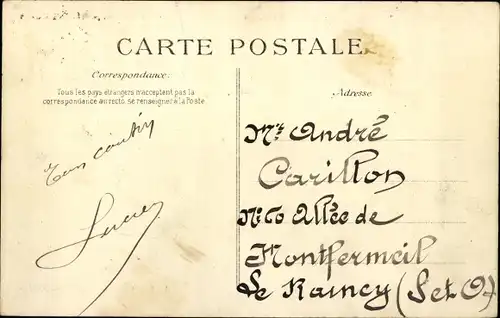 CARTE POSTALE
Correspondance.
Tous les pays étrangers n'acceptent pas la
correspondance au recto, se renseigner à la Poste.
Adresse
Mr. André
Carillon
Allée de
Montfermeil
Le Raincy (S et O)